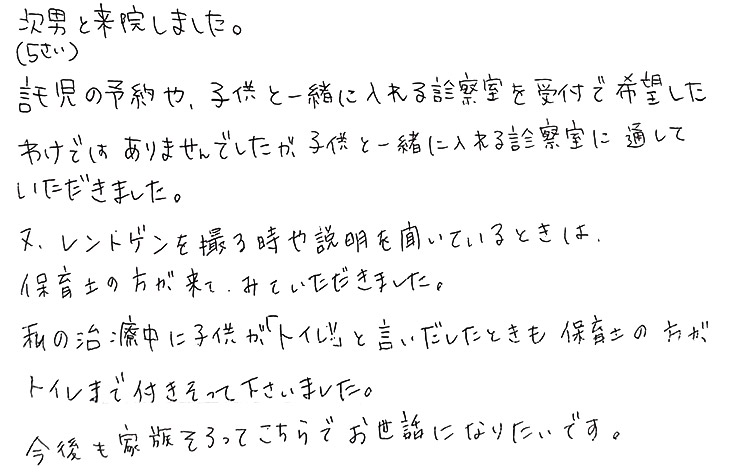 次男と来院しました。
(5さい)
託児の予約や、子供と一緒に入れる診察室を受付で希望した
わけではありませんでしたが、子供と一緒に入れる診察室に通して
いただきました。
又、レントゲンを撮る時や説明を聞いているときは、
保育士の方が来て、みていただきました。
私の治療中に子供が「トイレ!!」と言いだしたときも保育士の方が
トイレまで付きそって下さいました。
今後も家族そろってこちらでお世話になりたいです。